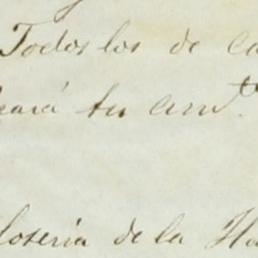 Todos los de ca
eará tu am.to
losería de la Ha